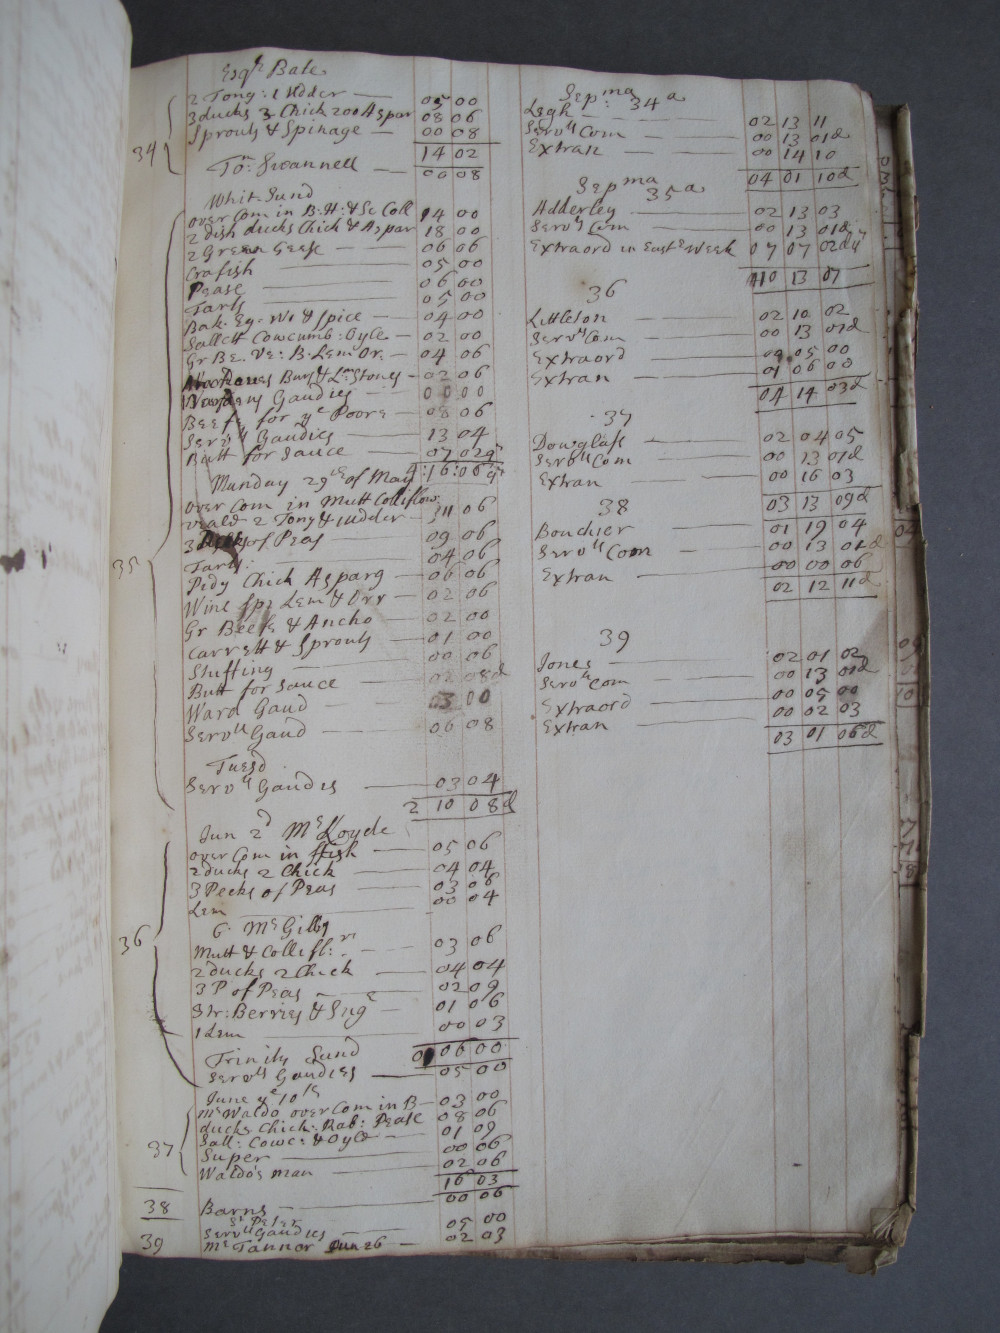 Esqr Bate
2 Tong: 1 Udder — 05 00
3 ducks 3 Chick 200 Aspar 08 06
Sprouts & Spinage — 00 08
34
14 02
To: Swannell — 00 08
Whit-Sund
over Com in B. H: & Sc Coll 14 00
2 dish ducks Chick & Aspar 18 00
2 Green Geese — 06 06
Crafish — 05 00
Pease — 06 00
Tarts — 05 00
Bak. Eg. Wi & Spice — 04 00
Sallett Cowcumb: Oyle — 02 00
Gr Be. Ve: B. Lem. Or. — 04 06
Buns & Stones — 02 06
Wardens Gaudies — 00 00
Beef for ye Poore — 08 06
Servts Gaudies — 13 04
Butt for Sauce — 07 02q
4:16:06q
Munday 29th of May
over Com in Mutt Colliflow
veale 2 Tong & udder — 11 06
3 Pecks of Peas — 09 06
35
Tarts: — 04 06
Pidg Chick Asparg — 06 06
Wine Sp: Lem & Orr — 02 06
Gr Beefe & Ancho — 02 00
Carrett & Sprouts — 01 00
Stuffing — 00 06
Butt for Sauce — 02 08d
Ward Gaud — 03 00
Servts Gaud — 06 08
Tuesd
Servts Gaudies — 03 04
2 10 08d
Jun 2d Mr Loyde
over Com in ffish — 05 06
2 ducks 2 Chick — 04 04
3 Pecks of Peas — 03 06
Lem — 00 04
6. Mr Gilby
36
Mutt & Collifl:r — 03 06
2 ducks 2 Chick — 04 04
3 P of Peas — 02 09
Str: Berries & Sug — 01 06
1 Lem — 00 03
Trinity Sund 06 00
Servts Gaudies — 05 00
June ye 10th
Mr Waldo over Com in B — 03 00
ducks Chick: Rab: Pease 08 06
Sall: Cowc: & Oyle — 01 09
37
Super — 00 06
Waldo's man — 02 06
16 03
38 Barns — 00 06
St Peter
Servts Gaudies — 05 00
39 Mr Tannor Jun 26 — 02 03
Sepma: 34a
Legh — 02 13 11
Servts Com — 00 13 01d
Extran — 00 14 10
04 01 10d
Sepma 35a
Adderley — 02 13 03
Servts Com — 00 13 01d
Extraord in Eastr Week 07 07 02d
10 13 07
36
Littleton — 02 10 02
Servts Com — 00 13 01d
Extraord — 00 05 00
Extran — 01 06 00
04 14 03d
37
Douglass — 02 04 05
Servts Com — 00 13 01d
Extran — 00 16 03
03 13 09d
38
Bouchier — 01 19 04
Servts Com — 00 13 01d
Extran — 00 00 06
02 12 11d
39
Jones — 02 01 02
Servts Com — 00 13 01d
Extraord — 00 05 00
Extran — 00 02 03
03 01 06d